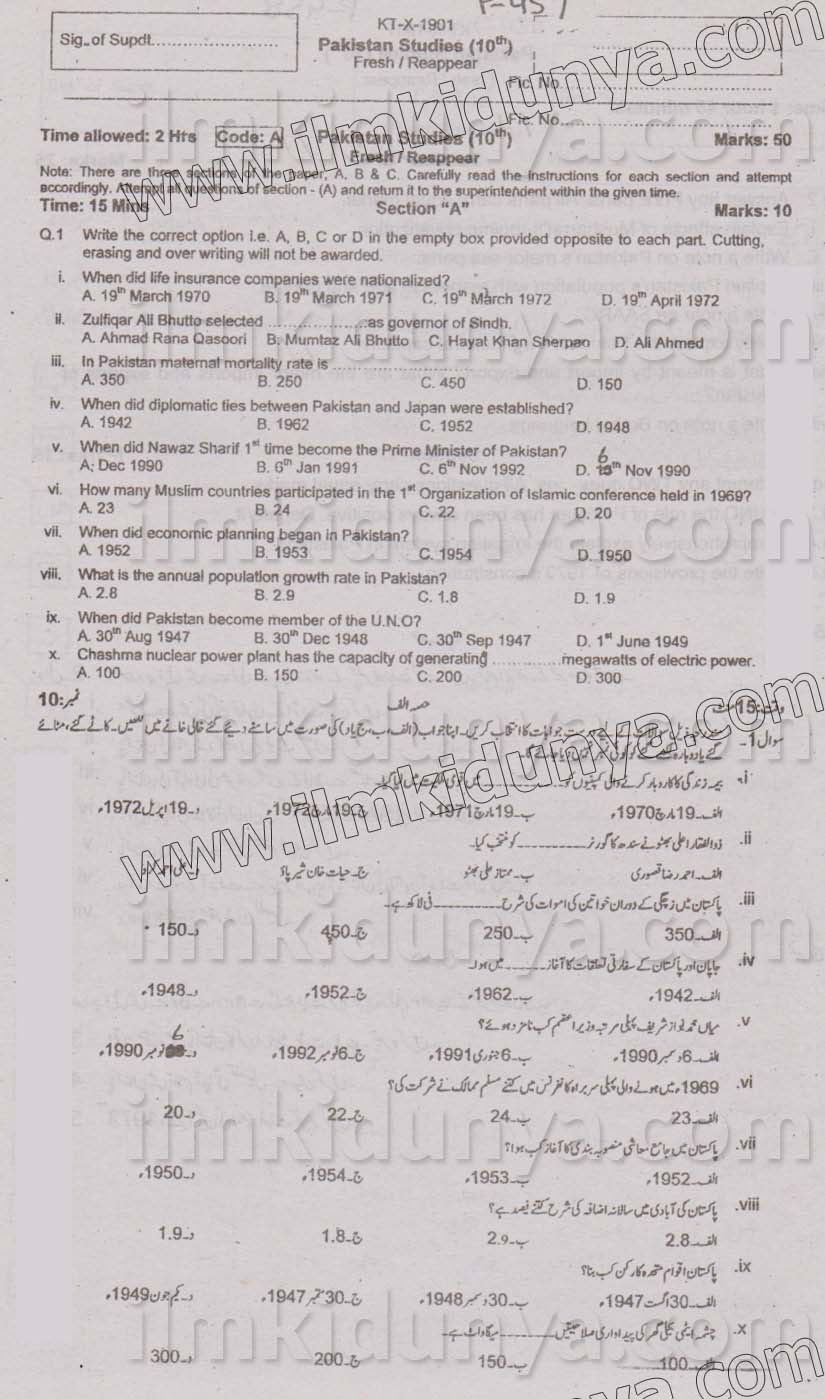 P-457
KT-X-1901
Sig. of Supdt.....................
Pakistan Studies (10th)
Fresh / Reappear
Fic No
Fic. No.....
Time allowed: 2 Hrs Code: A Pakistan Studies (10th) Marks: 50
Fresh / Reappear
Note: There are three sections of the paper, A, B & C. Carefully read the instructions for each section and attempt
accordingly. Attempt all questions of section - (A) and return it to the superintendent within the given time.
Time: 15 Mins Section "A" Marks: 10
Q.1 Write the correct option i.e. A, B, C or D in the empty box provided opposite to each part. Cutting,
erasing and over writing will not be awarded.
i. When did life insurance companies were nationalized?
A. 19th March 1970 B. 19th March 1971 C. 19th March 1972 D. 19th April 1972
ii. Zulfiqar Ali Bhutto selected .....................as governor of Sindh.
A. Ahmad Rana Qasoori B. Mumtaz Ali Bhutto C. Hayat Khan Sherpao D. Ali Ahmed
iii. In Pakistan maternal mortality rate is .............................
A. 350 B. 250 C. 450 D. 150
iv. When did diplomatic ties between Pakistan and Japan were established?
A. 1942 B. 1962 C. 1952 D. 1948
v. When did Nawaz Sharif 1st time become the Prime Minister of Pakistan?
A. Dec 1990 B. 6th Jan 1991 C. 6th Nov 1992 D. 6th Nov 1990
vi. How many Muslim countries participated in the 1st Organization of Islamic conference held in 1969?
A. 23 B. 24 C. 22 D. 20
vii. When did economic planning began in Pakistan?
A. 1952 B. 1953 C. 1954 D. 1950
viii. What is the annual population growth rate in Pakistan?
A. 2.8 B. 2.9 C. 1.8 D. 1.9
ix. When did Pakistan become member of the U.N.O?
A. 30th Aug 1947 B. 30th Dec 1948 C. 30th Sep 1947 D. 1st June 1949
x. Chashma nuclear power plant has the capacity of generating ..............megawatts of electric power.
A. 100 B. 150 C. 200 D. 300
وقت: 15 منٹ حصہ الف نمبر: 10
سوال 1۔ جوابات کا انتخاب کریں۔ اپنا جواب (الف، ب، ج یا د) کی صورت میں سامنے دیے گئے خالی خانے میں لکھیں۔ کاٹے گئے، مٹائے
گئے یا دوبارہ
i. بیمہ زندگی کا کاروبار کرنے والی کمپنیوں کو میں قومی
الف۔ 19 مارچ 1970ء ب۔ 19 مارچ 1971ء ج۔ 19 مارچ 1972ء د۔ 19 اپریل 1972ء
ii. ذوالفقار علی بھٹو نے سندھ کا گورنر ـــــــــ کو منتخب کیا۔
الف۔ احمد رضا قصوری ب۔ ممتاز علی بھٹو ج۔ حیات خان شیرپاؤ
iii. پاکستان میں زچگی کے دوران خواتین کی اموات کی شرح ـــــــــ فی لاکھ ہے۔
الف۔ 350 ب۔ 250 ج۔ 450 د۔ 150
iv. جاپان اور پاکستان کے سفارتی تعلقات کا آغاز ـــــــــ میں ہوا۔
الف۔ 1942ء ب۔ 1962ء ج۔ 1952ء د۔ 1948ء
v. میاں محمد نواز شریف پہلی مرتبہ وزیر اعظم کب نامزد ہوئے؟
الف۔ 6 دسمبر 1990ء ب۔ 6 جنوری 1991ء ج۔ 6 نومبر 1992ء د۔ 6 نومبر 1990ء
vi. 1969ء میں ہونے والی پہلی سربراہ کانفرنس میں کتنے مسلم ممالک نے شرکت کی؟
الف۔ 23 ب۔ 24 ج۔ 22 د۔ 20
vii. پاکستان میں جامع معاشی منصوبہ بندی کا آغاز کب ہوا؟
الف۔ 1952ء ب۔ 1953ء ج۔ 1954ء د۔ 1950ء
viii. پاکستان کی آبادی میں سالانہ اضافہ کی شرح کتنے فیصد ہے؟
الف۔ 2.8 ب۔ 2.9 ج۔ 1.8 د۔ 1.9
ix. پاکستان اقوام متحدہ کا رکن کب بنا؟
الف۔ 30 اگست 1947ء ب۔ 30 دسمبر 1948ء ج۔ 30 ستمبر 1947ء د۔ یکم جون 1949ء
x. چشمہ ایٹمی بجلی گھر کی پیداواری صلاحیتیں ـــــــــ میگاواٹ ہے۔
الف۔ 100 ب۔ 150 ج۔ 200 د۔ 300
www.ilmkidunya.com
ilmkidunya.com